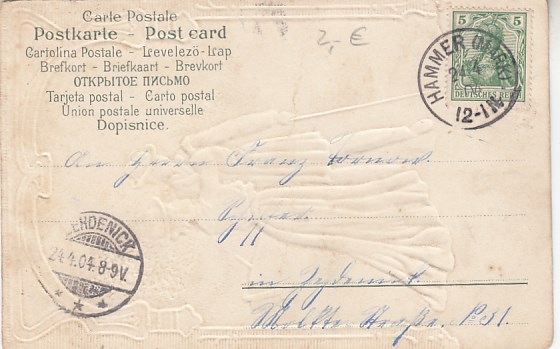 Carte Postale
Postkarte – Post card
Cartolina Postale - Levelezö-Lap
Brefkort - Briefkaart - Brevkort
ОТКРЫТОЕ ПИСЬМО
Tarjeta postal - Carto postal
Union postale universelle
Dopisnice.
2,- €
5 5
DEUTSCHES REICH
HAMMER
12-1N
An Herrn Franz Tornow
ZEHDENICK
24.4.04. 8-9V.
in Zehdenick
Straße. No 31.